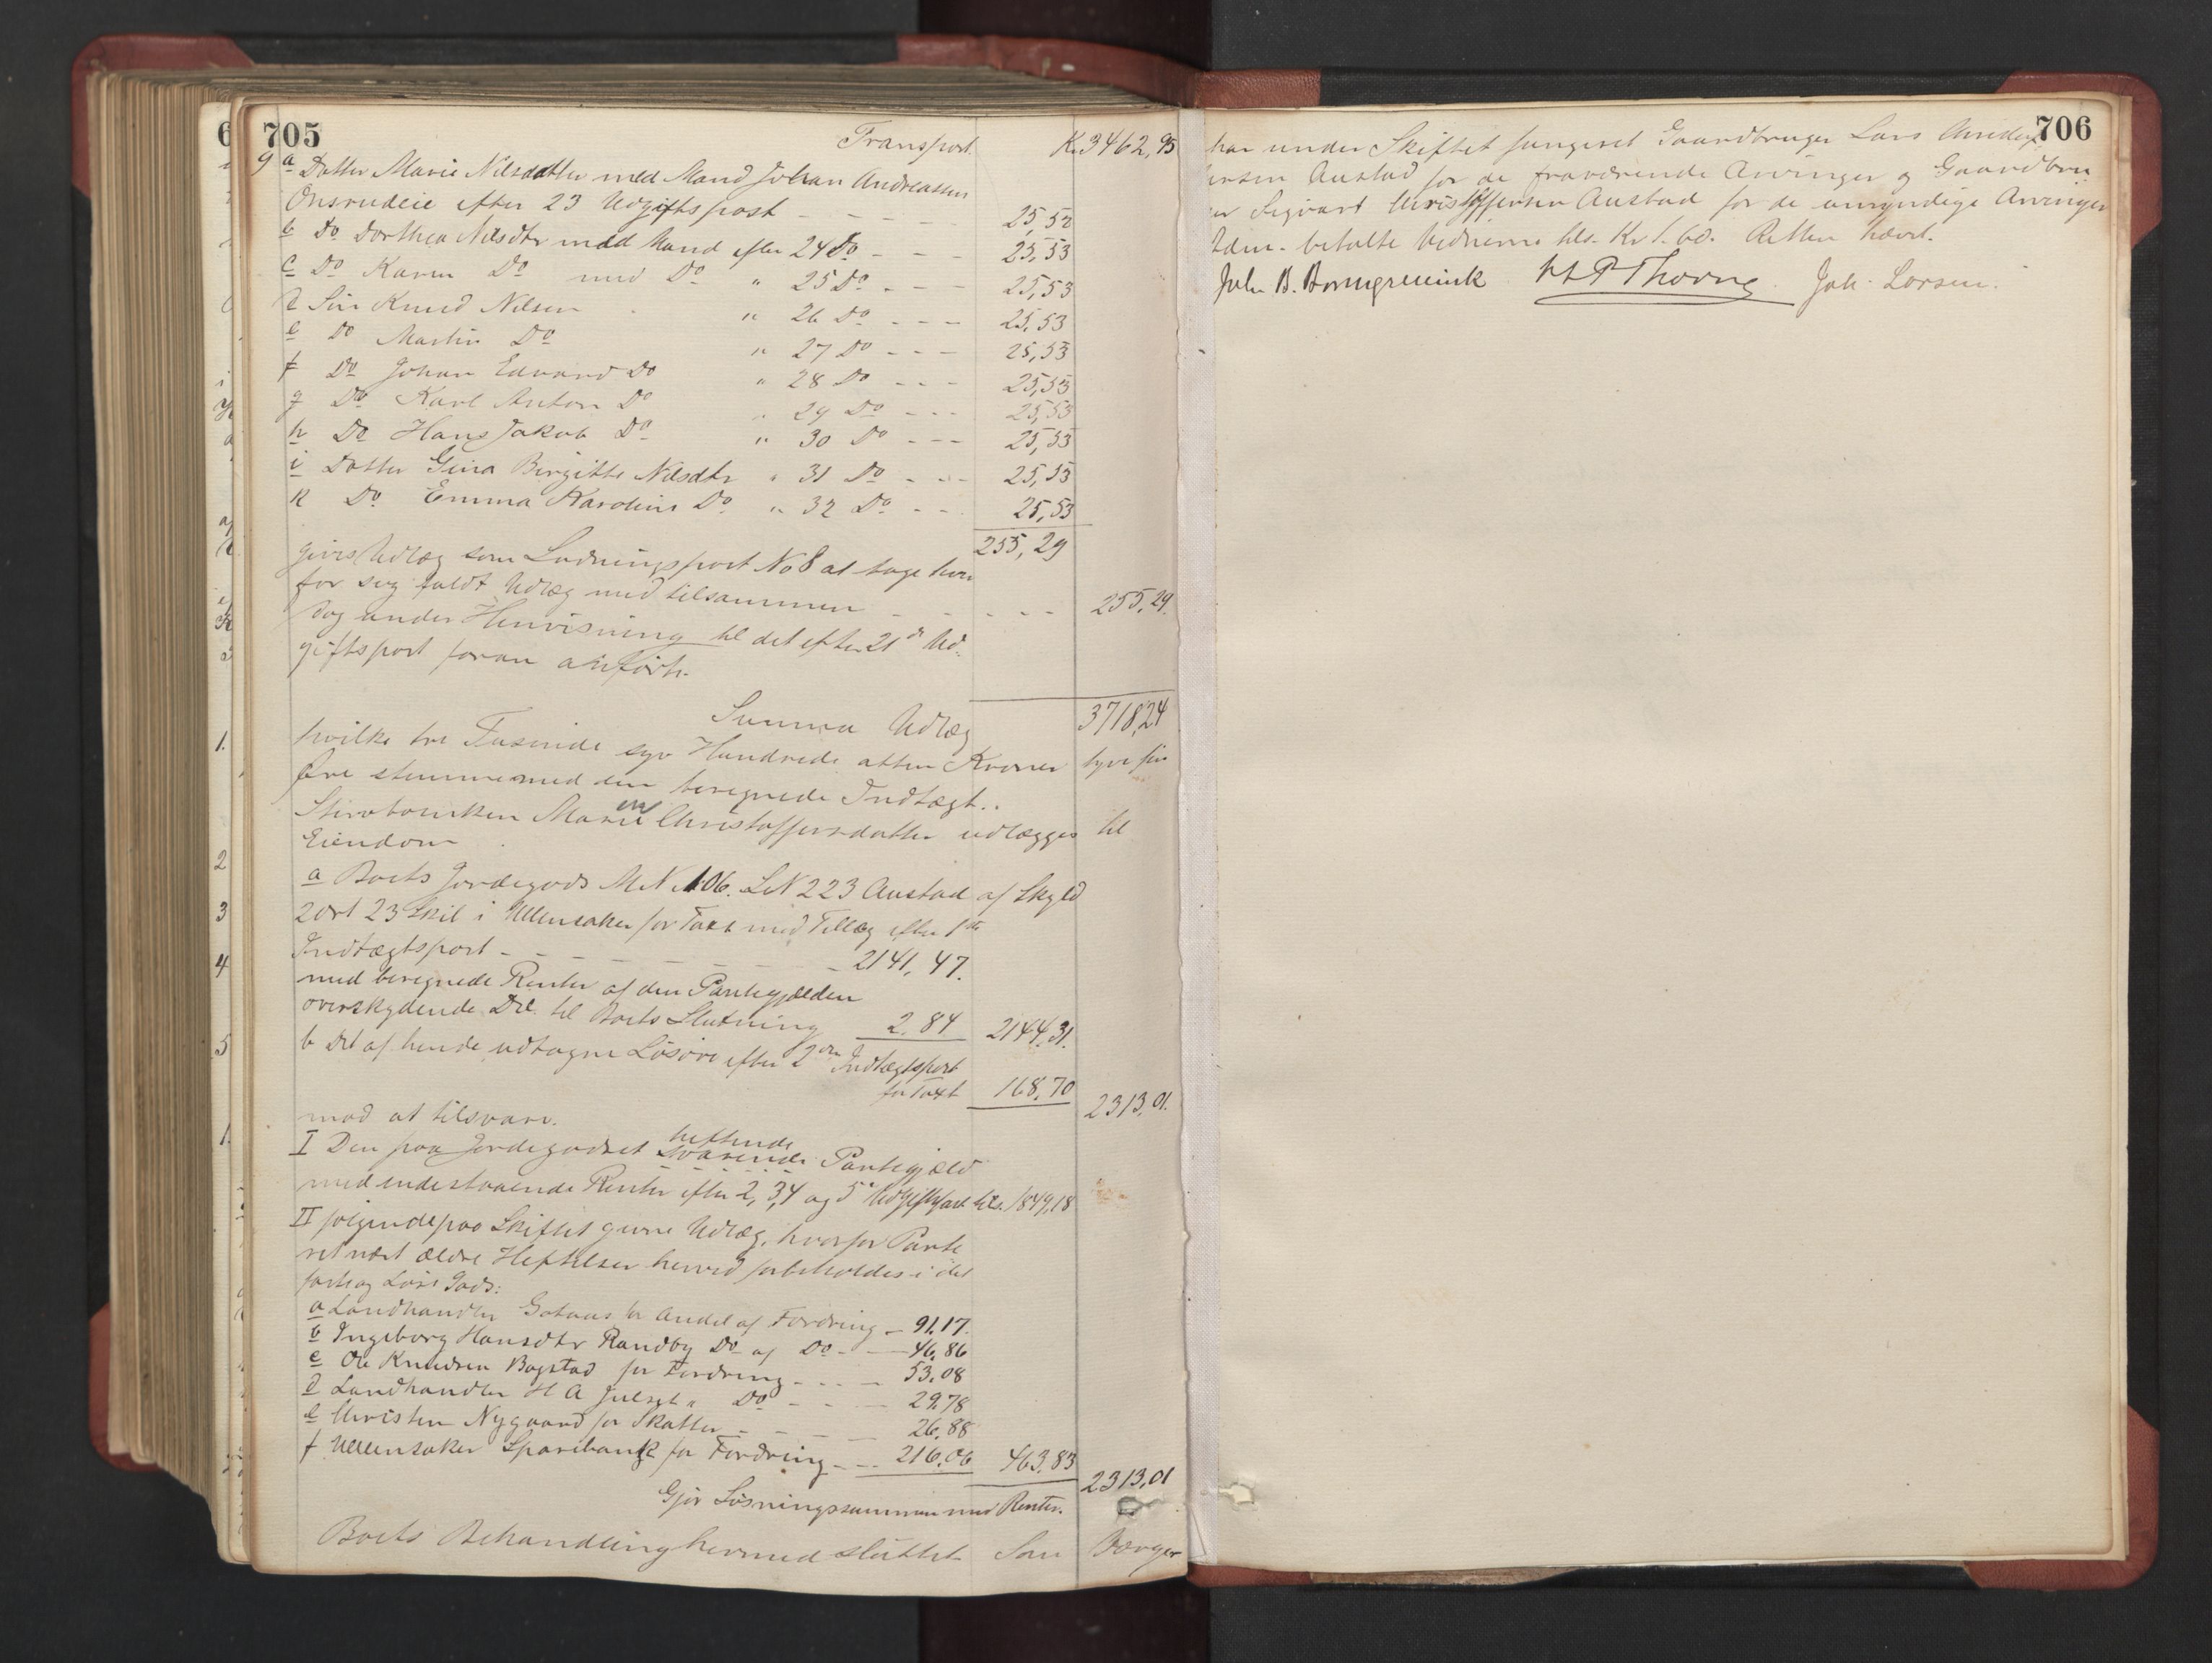 705
Transport. Kr 3462,95
9 a Datter Marie Nilsdatter med Mand Johan Andreassen
Onsrudeie efter 23 Udgiftspost - - - - 25,52
b Do Dorthea Nilsdtr med Mand efter 24 Do - - - 25,53
c Do Karen Do med Do " 25 Do - - - 25,53
d Søn Knud Nilsen " 26 Do - - - 25,53
e Do Martin Do " 27 Do - - - 25,53
f Do Johan Edvard Do " 28 Do - - - 25,53
g Do Karl Anton Do " 29 Do - - - 25,53
h Do Hans Jakob Do " 30 Do - - - 25,53
i Datter Gina Birgitte Nilsdtr " 31 Do - - - 25,53
k Do Emma Karoline Do " 32 Do - - - 25,53
255,29
gives Udlæg som Ladningspost No 8 at tage hver
for sig fuldt Udlæg med tilsammen - - - - - 255,29.
dog under Henvisning til det efter 21de Ud-
giftspost foran anførte.
Summa Udlæg 3718,24
hvilke tre Tusinde syv Hundrede atten Kroner tyve fire
Øre stemme med den beregnede Indtægt..
Stervboenken Maren Christoffersdatter udlægges til
Eiendom
a Boets Jordegods M N 106. L N 223 Austad af Skyld
2 ort 23 Skil i Ullensaker for Taxt med Tillæg efter 1ste
Indtægtspost - - - - - - 2141,47.
med beregnede Renter af den Pantegjælden
overskydende Del til Boets Slutning 2.84 2144.31.
b Det af hende udtagne Løsøre efter 2den Indtægtspost
for Taxt 168,70 2313,01.
mod at tilsvare.
I Den paa Jordegodset heftende svarende Pantegjæld
med indestaaende Renter efter 2, 3, 4 og 5 Udgiftspost tils. 1849,18
II følgende paa Skiftet givne Udlæg, hvorfor Pante
ret næst ældre Heftelser herved forbeholdes i det
faste og Løse Gods:
a Landhandler Gotaas for Andel af Fordring - 91.17.
b Ingeborg Hansdtr Randby Do af Do - - 46,86
c Ole Knudsen Bogstad for Fordring - - - 53,08
d Landhandler H A Julset " Do - - - 29,78
e Christen Nygaard for Skatter - - - 26,88
f Ullensaker Sparebank for Fordring - - 216,06 463,83
2313,01
Gjør Løsningssummen med Renter.
Boets Behandling hermed sluttet. Som Værger
706
har under Skiftet fungeret Gaardbruger Lars
Austad for de fraværende Arvinger og Gaardbru-
er Sigvart Christoffersen Austad for de umyndige Arvinger
Adm. betalte Vidnerne tils. Kr 1.60. Retten hævet.
Johs B. Borngrevink H P Thorne Joh. Larsen.